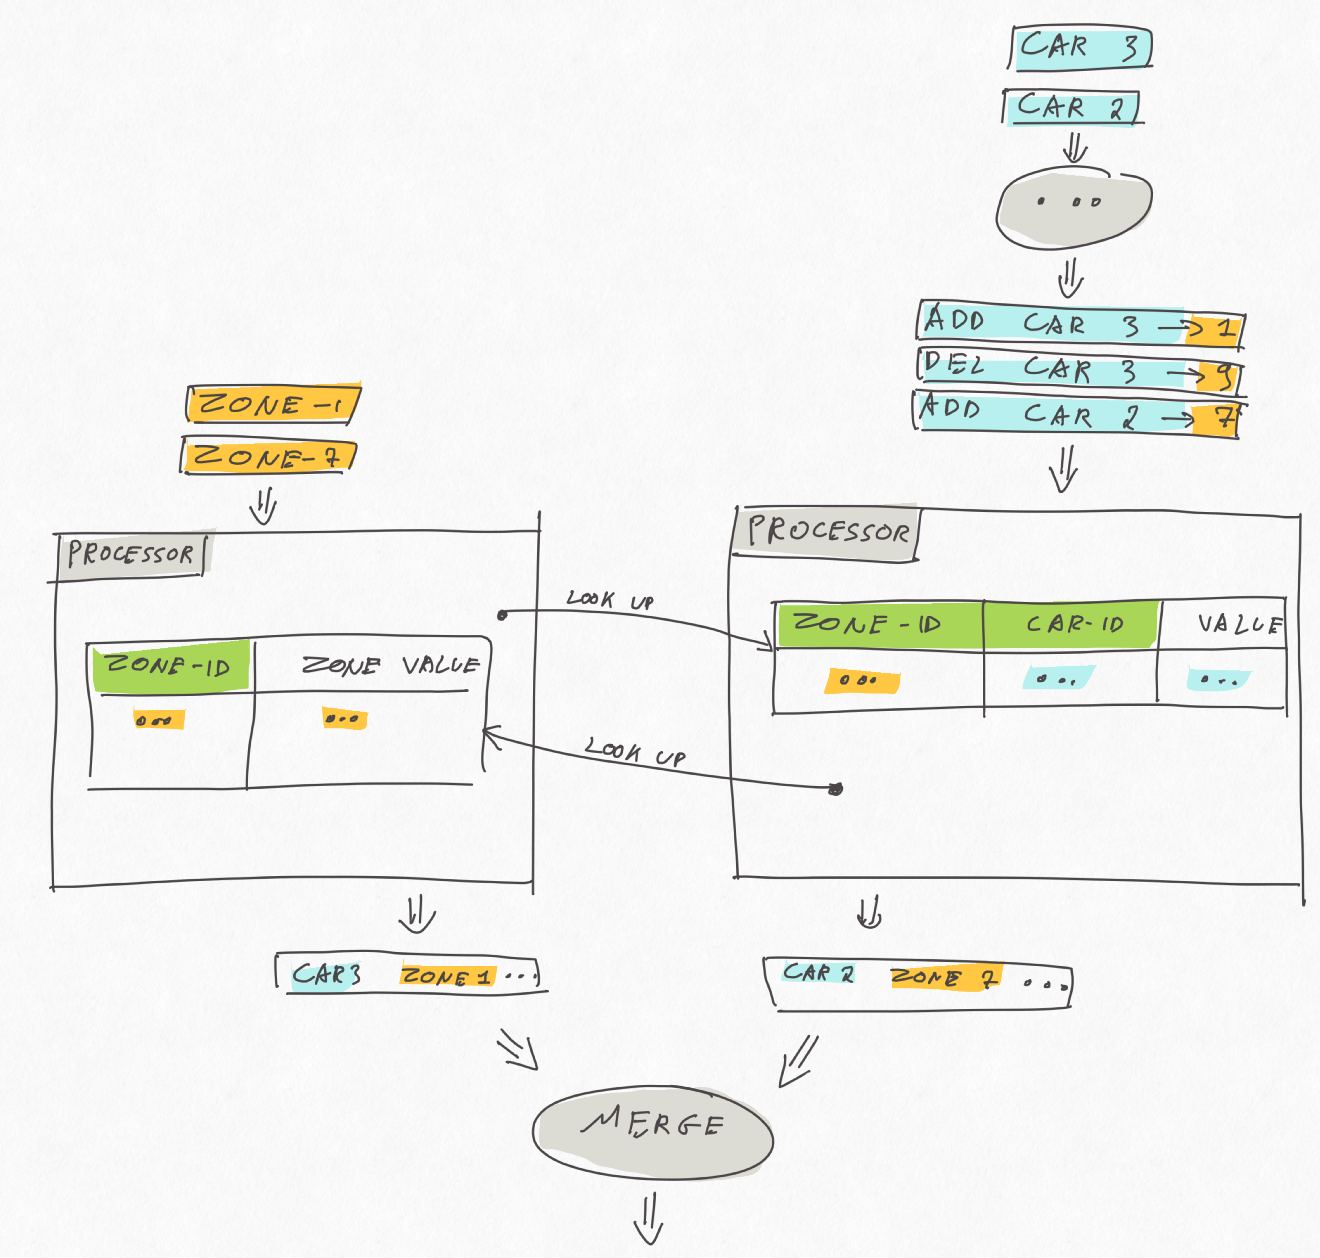 CAR 3
CAR 2
...
ADD CAR 3 → 1
DEL CAR 3 → 9
ADD CAR 2 → 7
ZONE-1
ZONE-7
PROCESSOR
ZONE-ID ZONE VALUE
... ...
LOOK UP
LOOK UP
PROCESSOR
ZONE-ID CAR-ID VALUE
... ... ...
CAR 3 ZONE 1 ...
CAR 2 ZONE 7 ...
MERGE